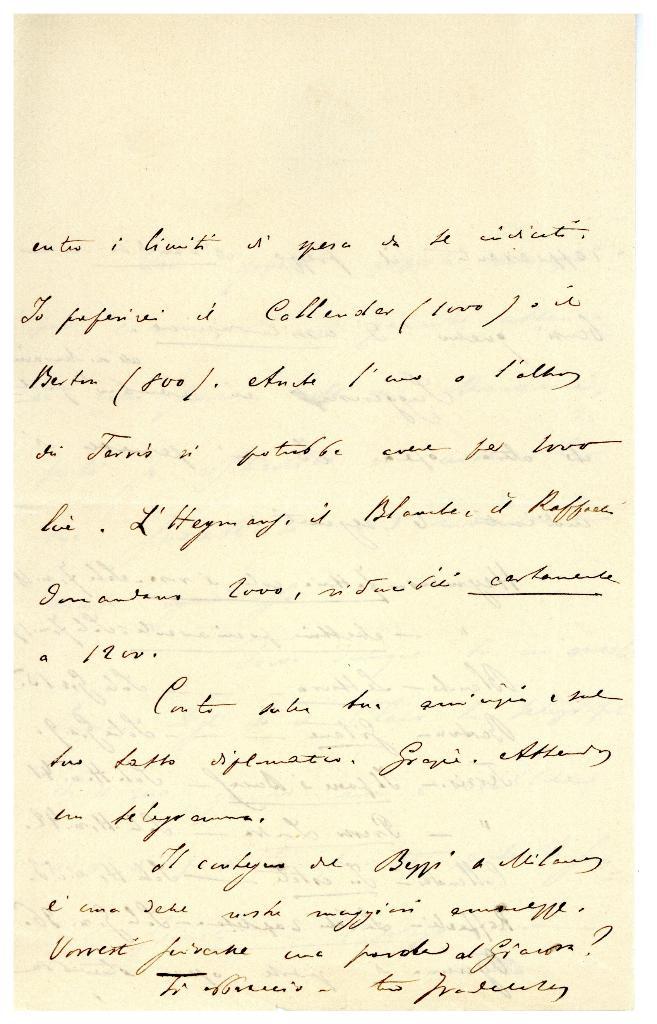 entro i limiti di spesa da te indicati.
Io preferirei il Callender (1000) o il
Berton (800). Anche l'uno o l'altro
di Ferris si potrebbe avere per 1000
lire. L'Heymans, il Blanche, il Raffaelli
domandano 2000, riducibili certamente
a 1200.
Conto sulla tua amicizia e sul
tuo tatto diplomatico. Grazie. Attendo
un telegramma.
Il contegno del Beppi a Milano
è una delle nostre maggiori amarezze.
Vorresti scrivere una parola al Giacosa?
Ti abbraccio tuo Fradeletto